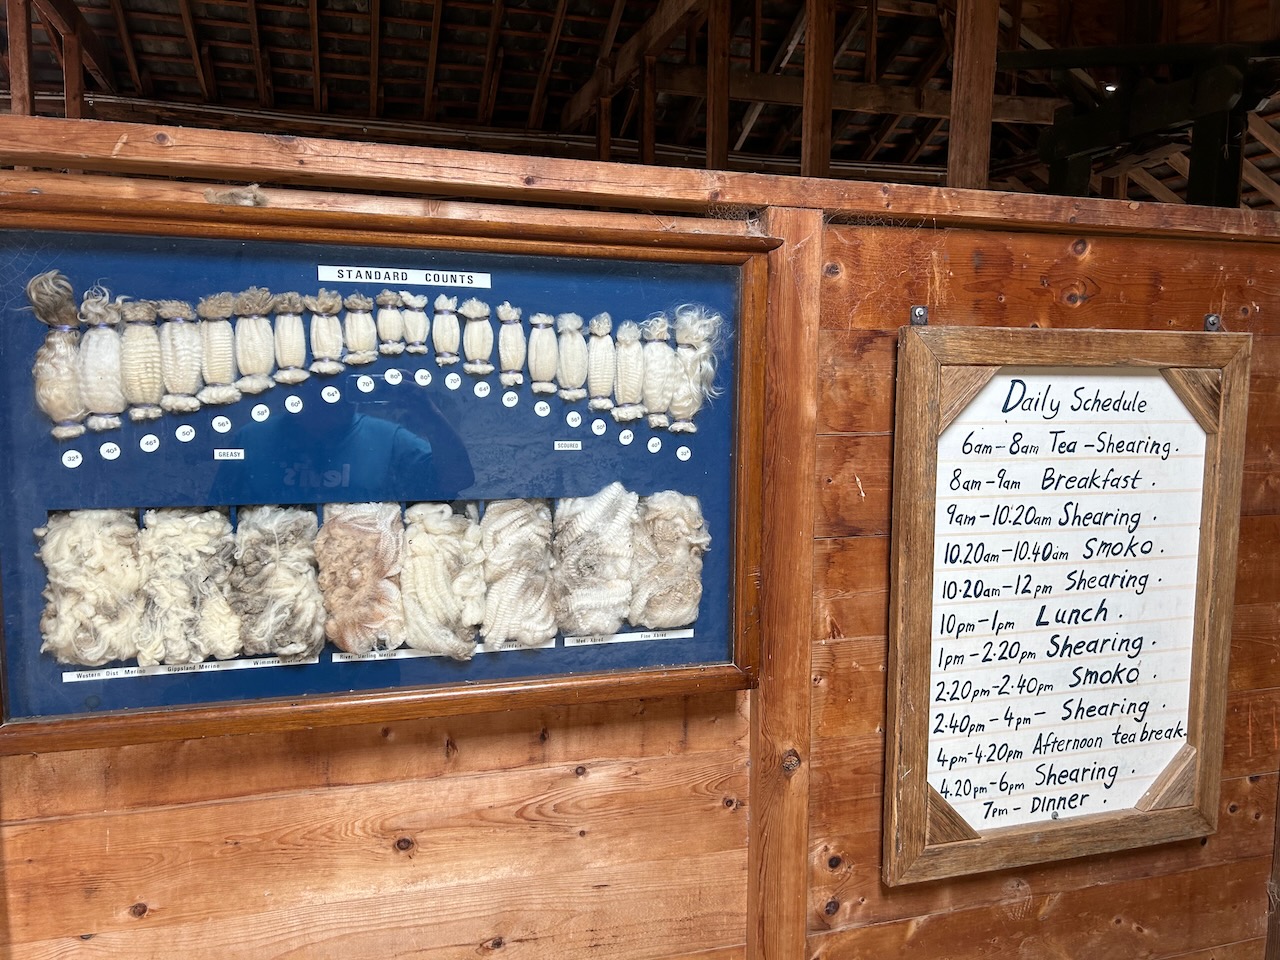 STANDARD COUNTS
32s
40s
46s
50s
56s
58s
60s
64s
70s
80s
80s
70s
64s
60s
58s
56s
50s
46s
40s
32s
GREASY
SCOURED
levi's
Western Dist Merino
Gippsland Merino
Wimmera
River Darling Merino
Med. Xbred
Fine Xbred
Daily Schedule
6am-8am Tea-Shearing.
8am-9am Breakfast.
9am-10.20am Shearing.
10.20am-10.40am Smoko.
10.20am-12pm Shearing.
10pm-1pm Lunch.
1pm-2.20pm Shearing.
2.20pm-2.40pm Smoko.
2.40pm-4pm- Shearing.
4pm-4.20pm Afternoon tea break.
4.20pm-6pm Shearing.
7pm-Dinner.